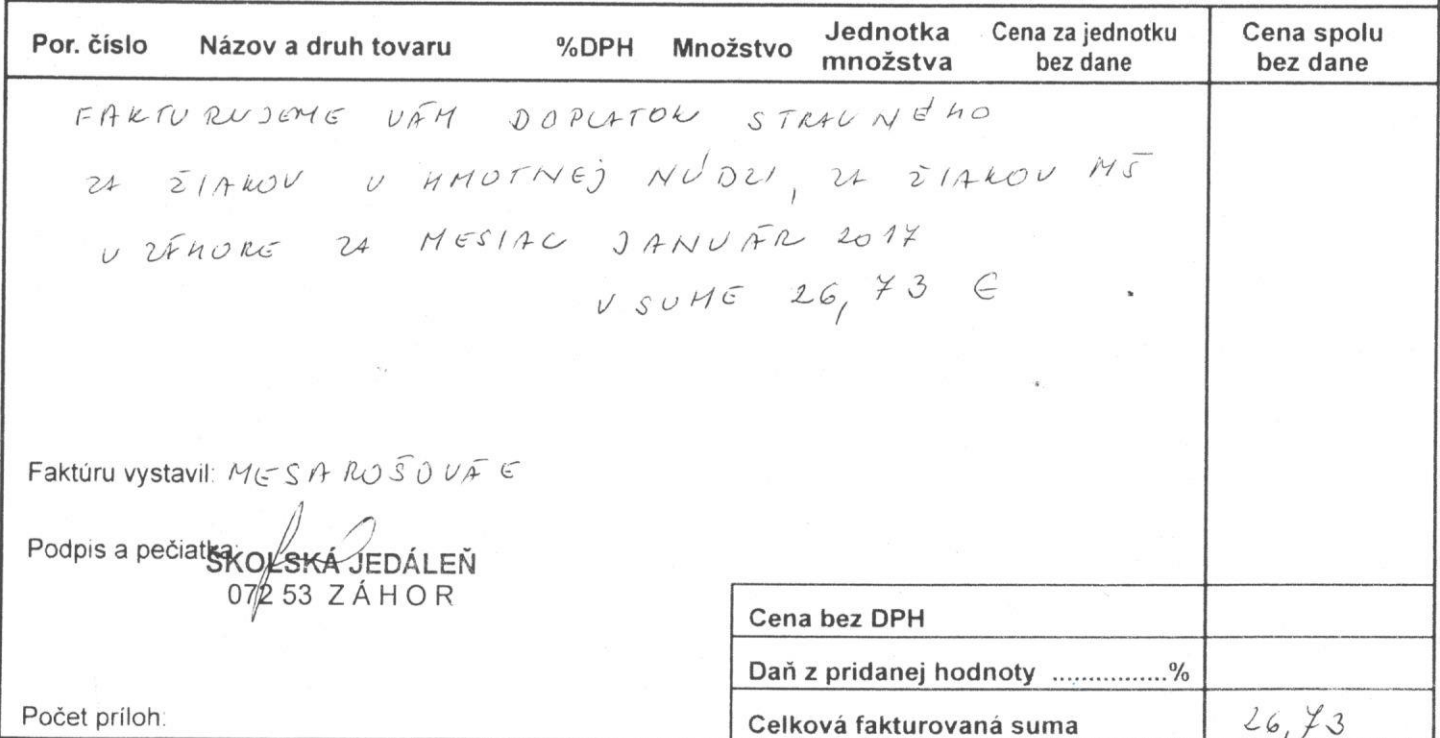 Por. číslo Názov a druh tovaru %DPH Množstvo Jednotka množstva Cena za jednotku bez dane Cena spolu bez dane
FAKTURUJEME VÁM DOPLATOK STRAVNÉHO
ZA ŽIAKOV V HMOTNEJ NÚDZI, ZA ŽIAKOV MŠ
V ZÁHORE ZA MESIAC JANUÁR 2017
V SUME 26,73 €
Faktúru vystavil: MESAROŠOVÁ E
Podpis a pečiatka:
ŠKOLSKÁ JEDÁLEŇ
072 53 ZÁHOR
Cena bez DPH
Daň z pridanej hodnoty ................%
Počet príloh:
Celková fakturovaná suma 26,73